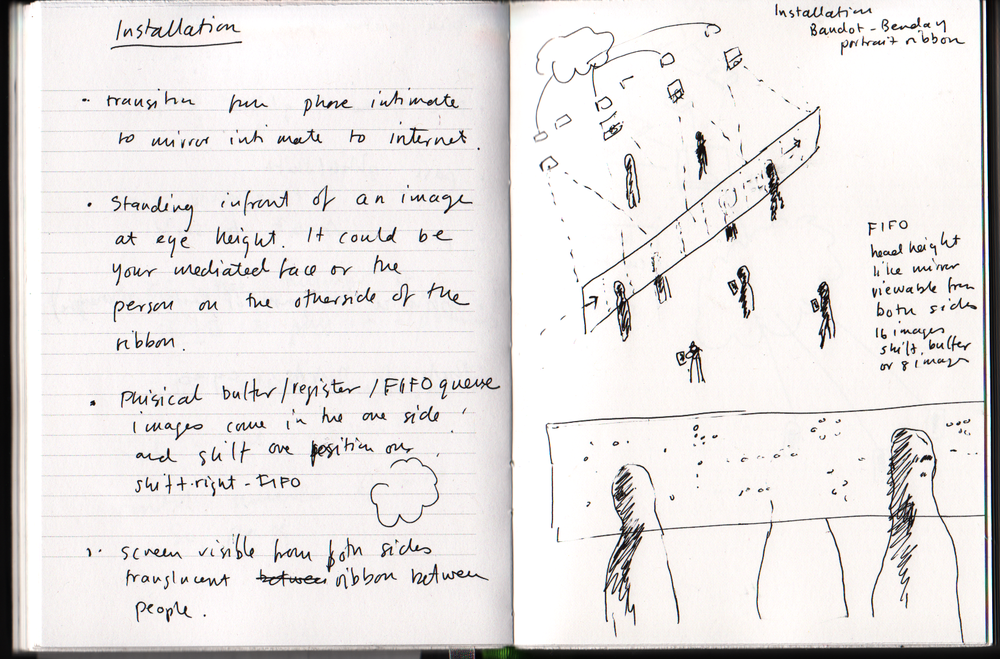 Installation
· transition from phone intimate
to mirror intimate to internet.
· Standing infront of an image
at eye height. It could be
your mediated face or the
person on the otherside of the
ribbon.
· Phisical buffer/register/FIFO queue
images come in the one side
and shift one position over
shift-right - FIFO
· screen visible from both sides
translucent between ribbon between
people.
Installation
Baudot-Benday
portrait ribbon
FIFO
head height
like mirror
viewable from
both sides
16 images
shift buffer
or 8 image